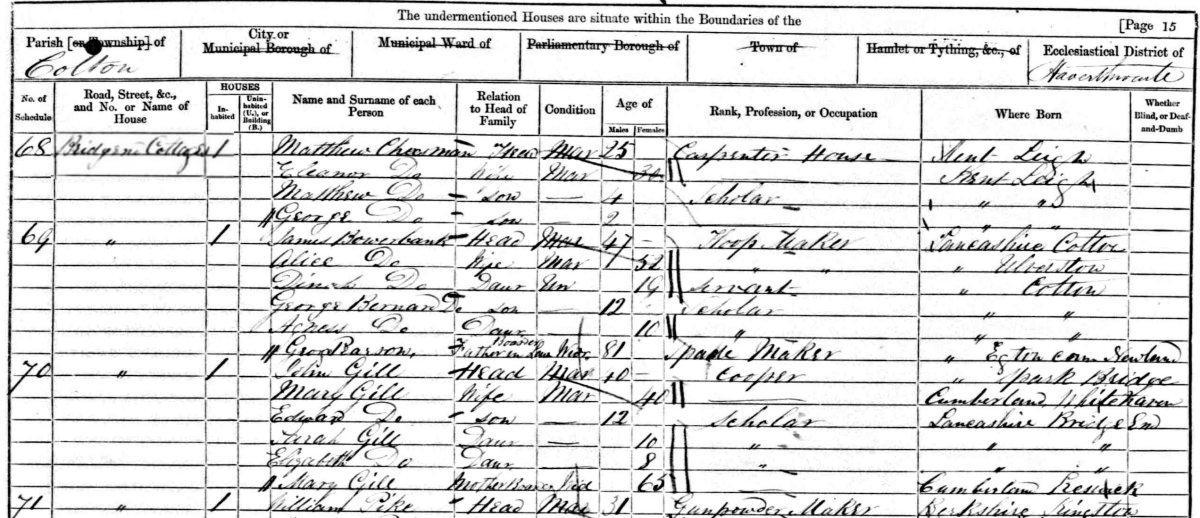 The undermentioned Houses are situate within the Boundaries of the [Page 15
Parish [or Township] of City or Municipal Borough of Municipal Ward of Parliamentary Borough of Town of Hamlet or Tything, &c., of Ecclesiastical District of
Colton Haverthwaite
No. of Schedule Road, Street, &c., and No. or Name of House HOUSES Inhabited Uninhabited (U.), or Building (B.) Name and Surname of each Person Relation to Head of Family Condition Age of Males Females Rank, Profession, or Occupation Where Born Whether Blind, or Deaf-and-Dumb
68 Cottages 1 Matthew Cheesman Head Mar 25 Carpenter House Kent Leigh
Eleanor Do Wife Mar 30 Kent Leigh
Matthew Do son — 4 Scholar " "
George Do son — 2 " "
69 " 1 James Bowerbank Head Mar 47 Hoop Maker Lancashire Colton
Alice Do Wife Mar 52 " " " Ulverston
Dinah Do Daur Un 19 Servant " Colton
George Bernard Do son — 12 Scholar " "
Agness Do Daur 10 " " "
Geo Pearson Father in Law Boarder Widr 81 Spade Maker " Egton cum Newland
70 " 1 John Gill Head Mar 40 Cooper " Spark Bridge
Mary Gill Wife Mar 40 Cumberland Whitehaven
Edward Do son — 12 Scholar Lancashire Bridge End
Sarah Gill Daur — 10 " " "
Elizabeth Do Daur 8 " "
Mary Gill Mother Boarder Wid 65 Cumberland
71 " 1 William Pike Head Mar 31 Gunpowder Maker Berkshire